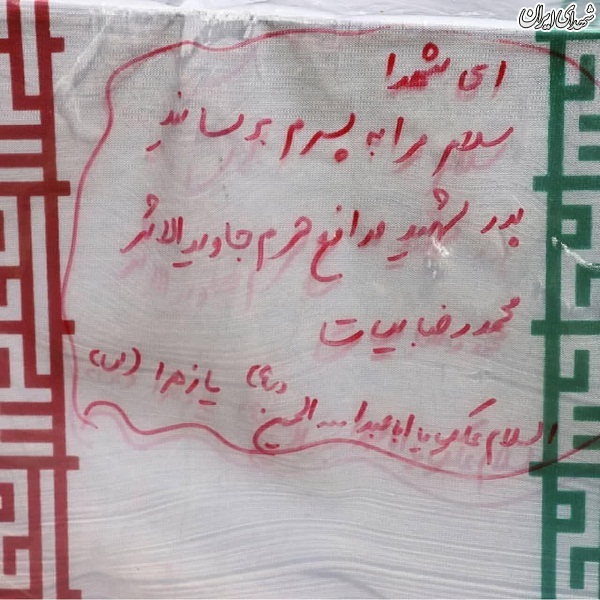 شهدای ایران
ای شهدا
سلام مرا به پسرم برسانید
پدر شهید مدافع حرم جاوید الاثر
محمدرضا بیات
یا زهرا (س)
السلام علیک یا اباعبدا... الحسین (ع)